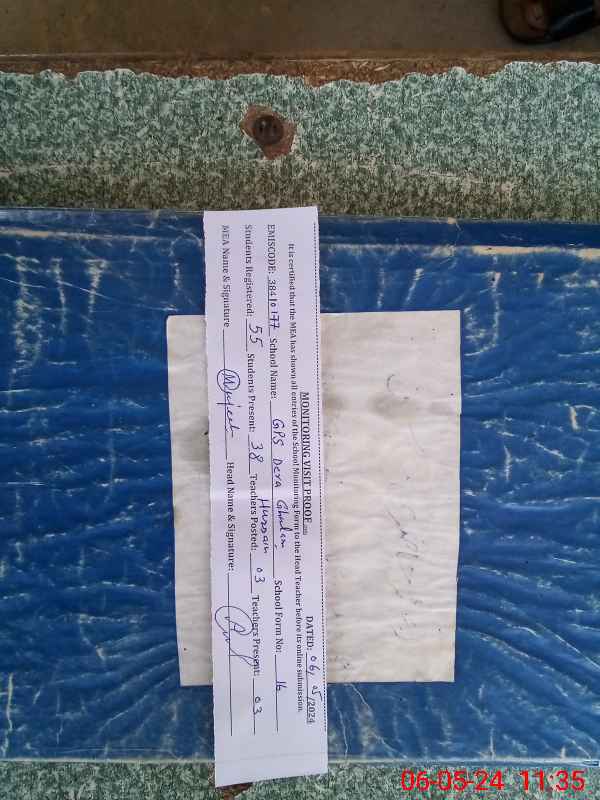 MONITORING VISIT PROOF DATED: 06/05/2024
It is certified that the MEA has shown all entries of the School Monitoring Form to the Head Teacher before its online submission.
EMISCODE: 38410177 School Name: GPS Dera Ghulam Hussain School Form No: 16
Students Registered: 55 Students Present: 38 Teachers Posted: 03 Teachers Present: 03
MEA Name & Signature Head Name & Signature:
06-05-24 11:35